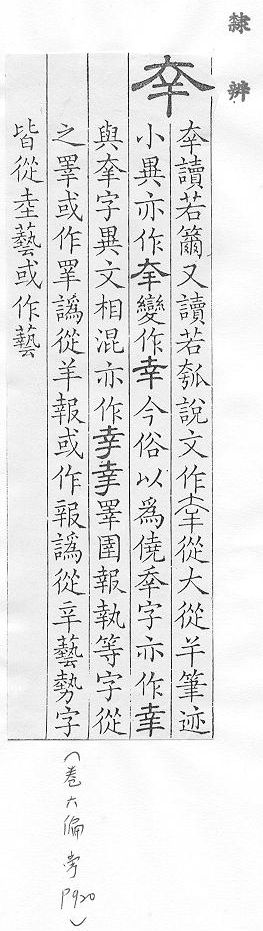 隸辨
㚔
㚔讀若籋又讀若瓠說文作㚔從大從𢆉筆迹
小異亦作㚔變作幸今俗以爲僥㚔字亦作幸
與㚔字異文相混亦作幸幸睪圉報執等字從
之睪或作睪譌從羊報或作報譌從辛藝勢字
皆從坴藝或作藝
(卷六偏旁P920)